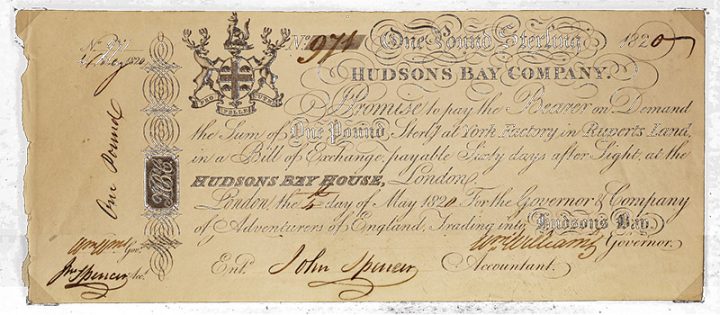 No. 971
4 May 1820
One Pound
HBC
Wm Wms Govr.
Jno Spencer Acct.
PRO PELLE CUTEM
No. 971 One Pound Sterling 1820
HUDSONS BAY COMPANY.
Promise to pay the Bearer on Demand
the Sum of One Pound Sterlg at York Factory in Ruperts Land,
in a Bill of Exchange payable Sixty days after Sight, at the
HUDSONS BAY HOUSE, London.
London, the 4th day of May 1820. For the Governor & Company
of Adventurers of England, Trading into Hudsons Bay.
Wm Williams Governor.
Entd. John Spencer Accountant.